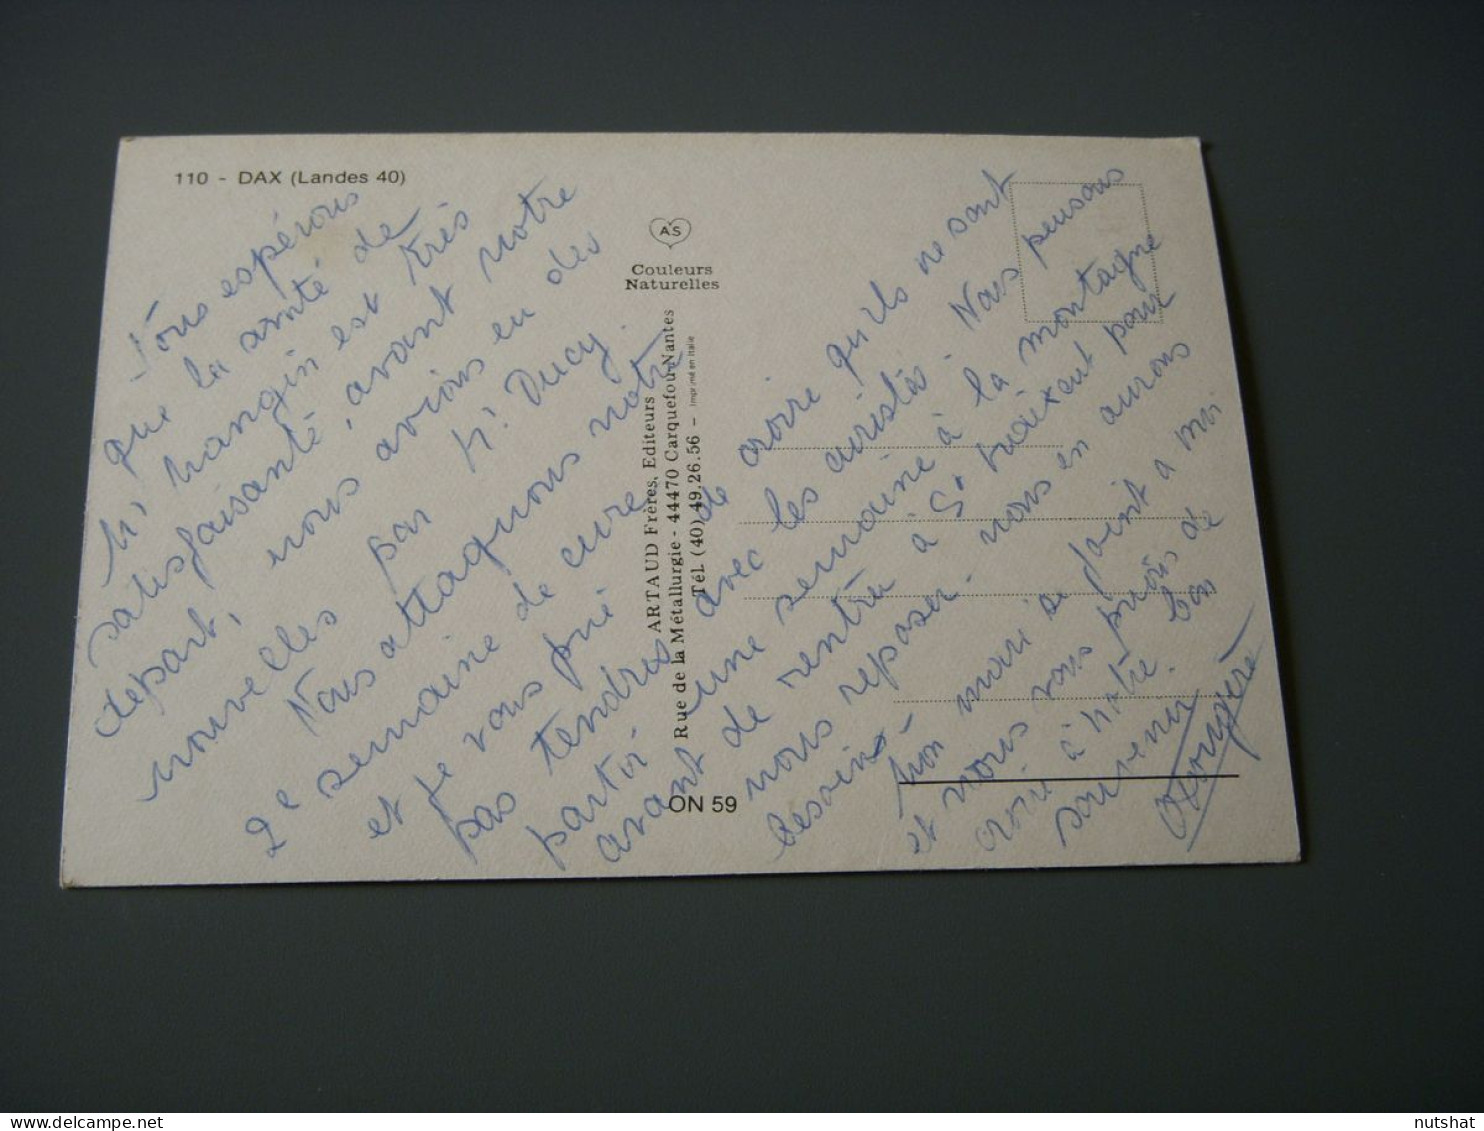 110 - DAX (Landes 40)
Nous espérons
que la santé de
Mr Mangin est très
satisfaisante, avant notre
départ, nous avions eu des
nouvelles par Mr Ducy.
Nous attaquons notre
2e semaine de cure,
et je vous prie de croire qu'ils ne sont
pas tendres avec les curistes. Nous pensons
partir une semaine à la montagne
avant de rentrer à St pour
nous reposer. nous en aurons
besoin.
Mon mari se joint a moi
et nous vous prions de
croire à notre bon
souvenir
AS
Couleurs
Naturelles
ARTAUD Frères, Editeurs
Rue de la Métallurgie - 44470 Carquefou-Nantes
Tél. (40) 49.26.56 - Imprimé en Italie
ON 59
nutshat